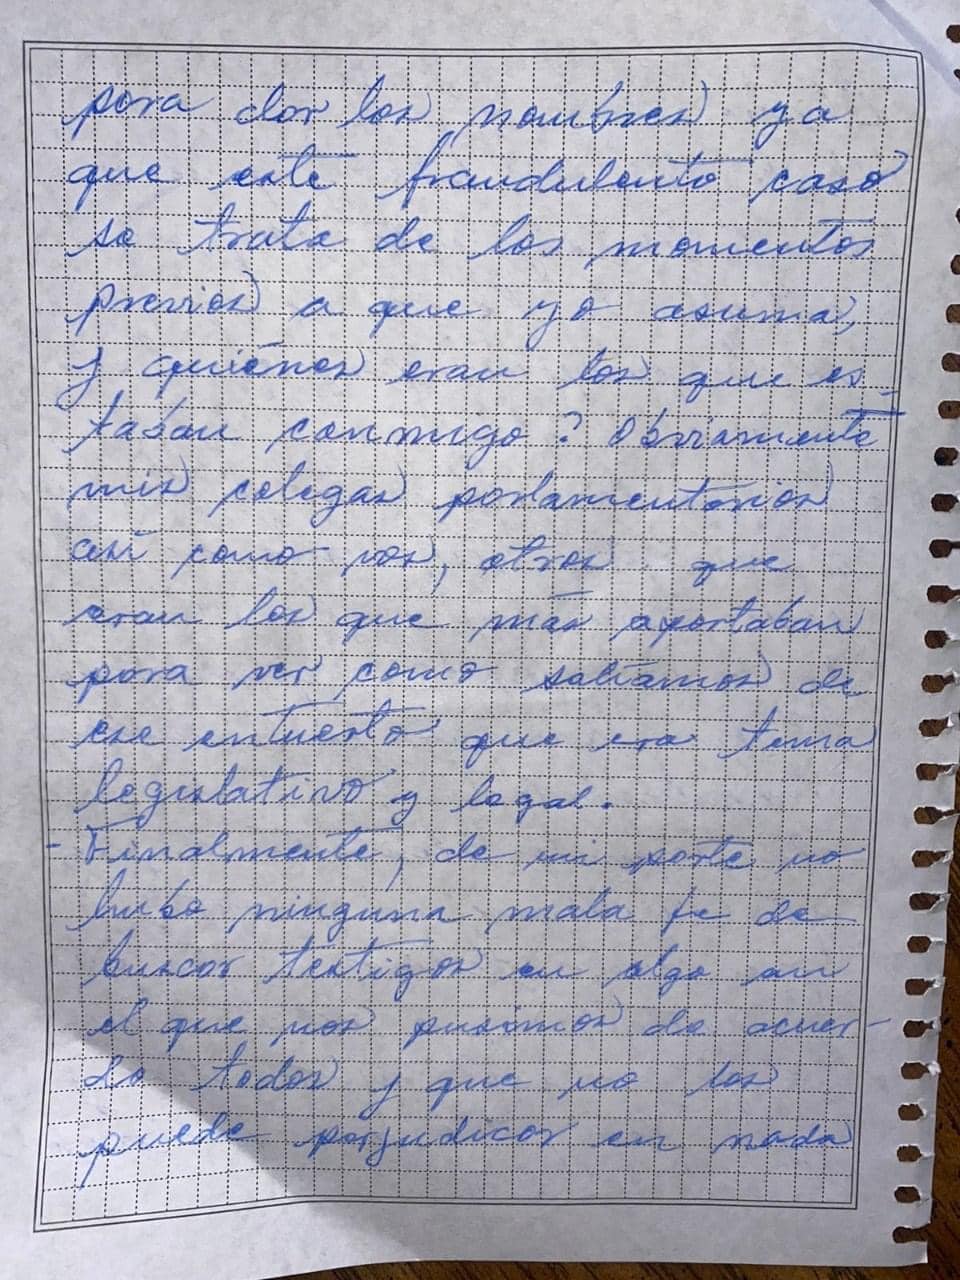 para dar los nombres ya
que este fraudulento caso
se trata de los momentos
previos a que yo asuma,
y quiénes eran los que es
taban conmigo? Obviamente
mis colegas parlamentarios
así como vos, otros que
eran los que más aportaban
para ver como salíamos de
ese entuerto que era tema
legislativo y legal.
- Finalmente, de mi parte no
hubo ninguna mala fe de
buscar testigos en algo en
el que nos pusimos de acuer-
do todos y que no los
puede perjudicar en nada